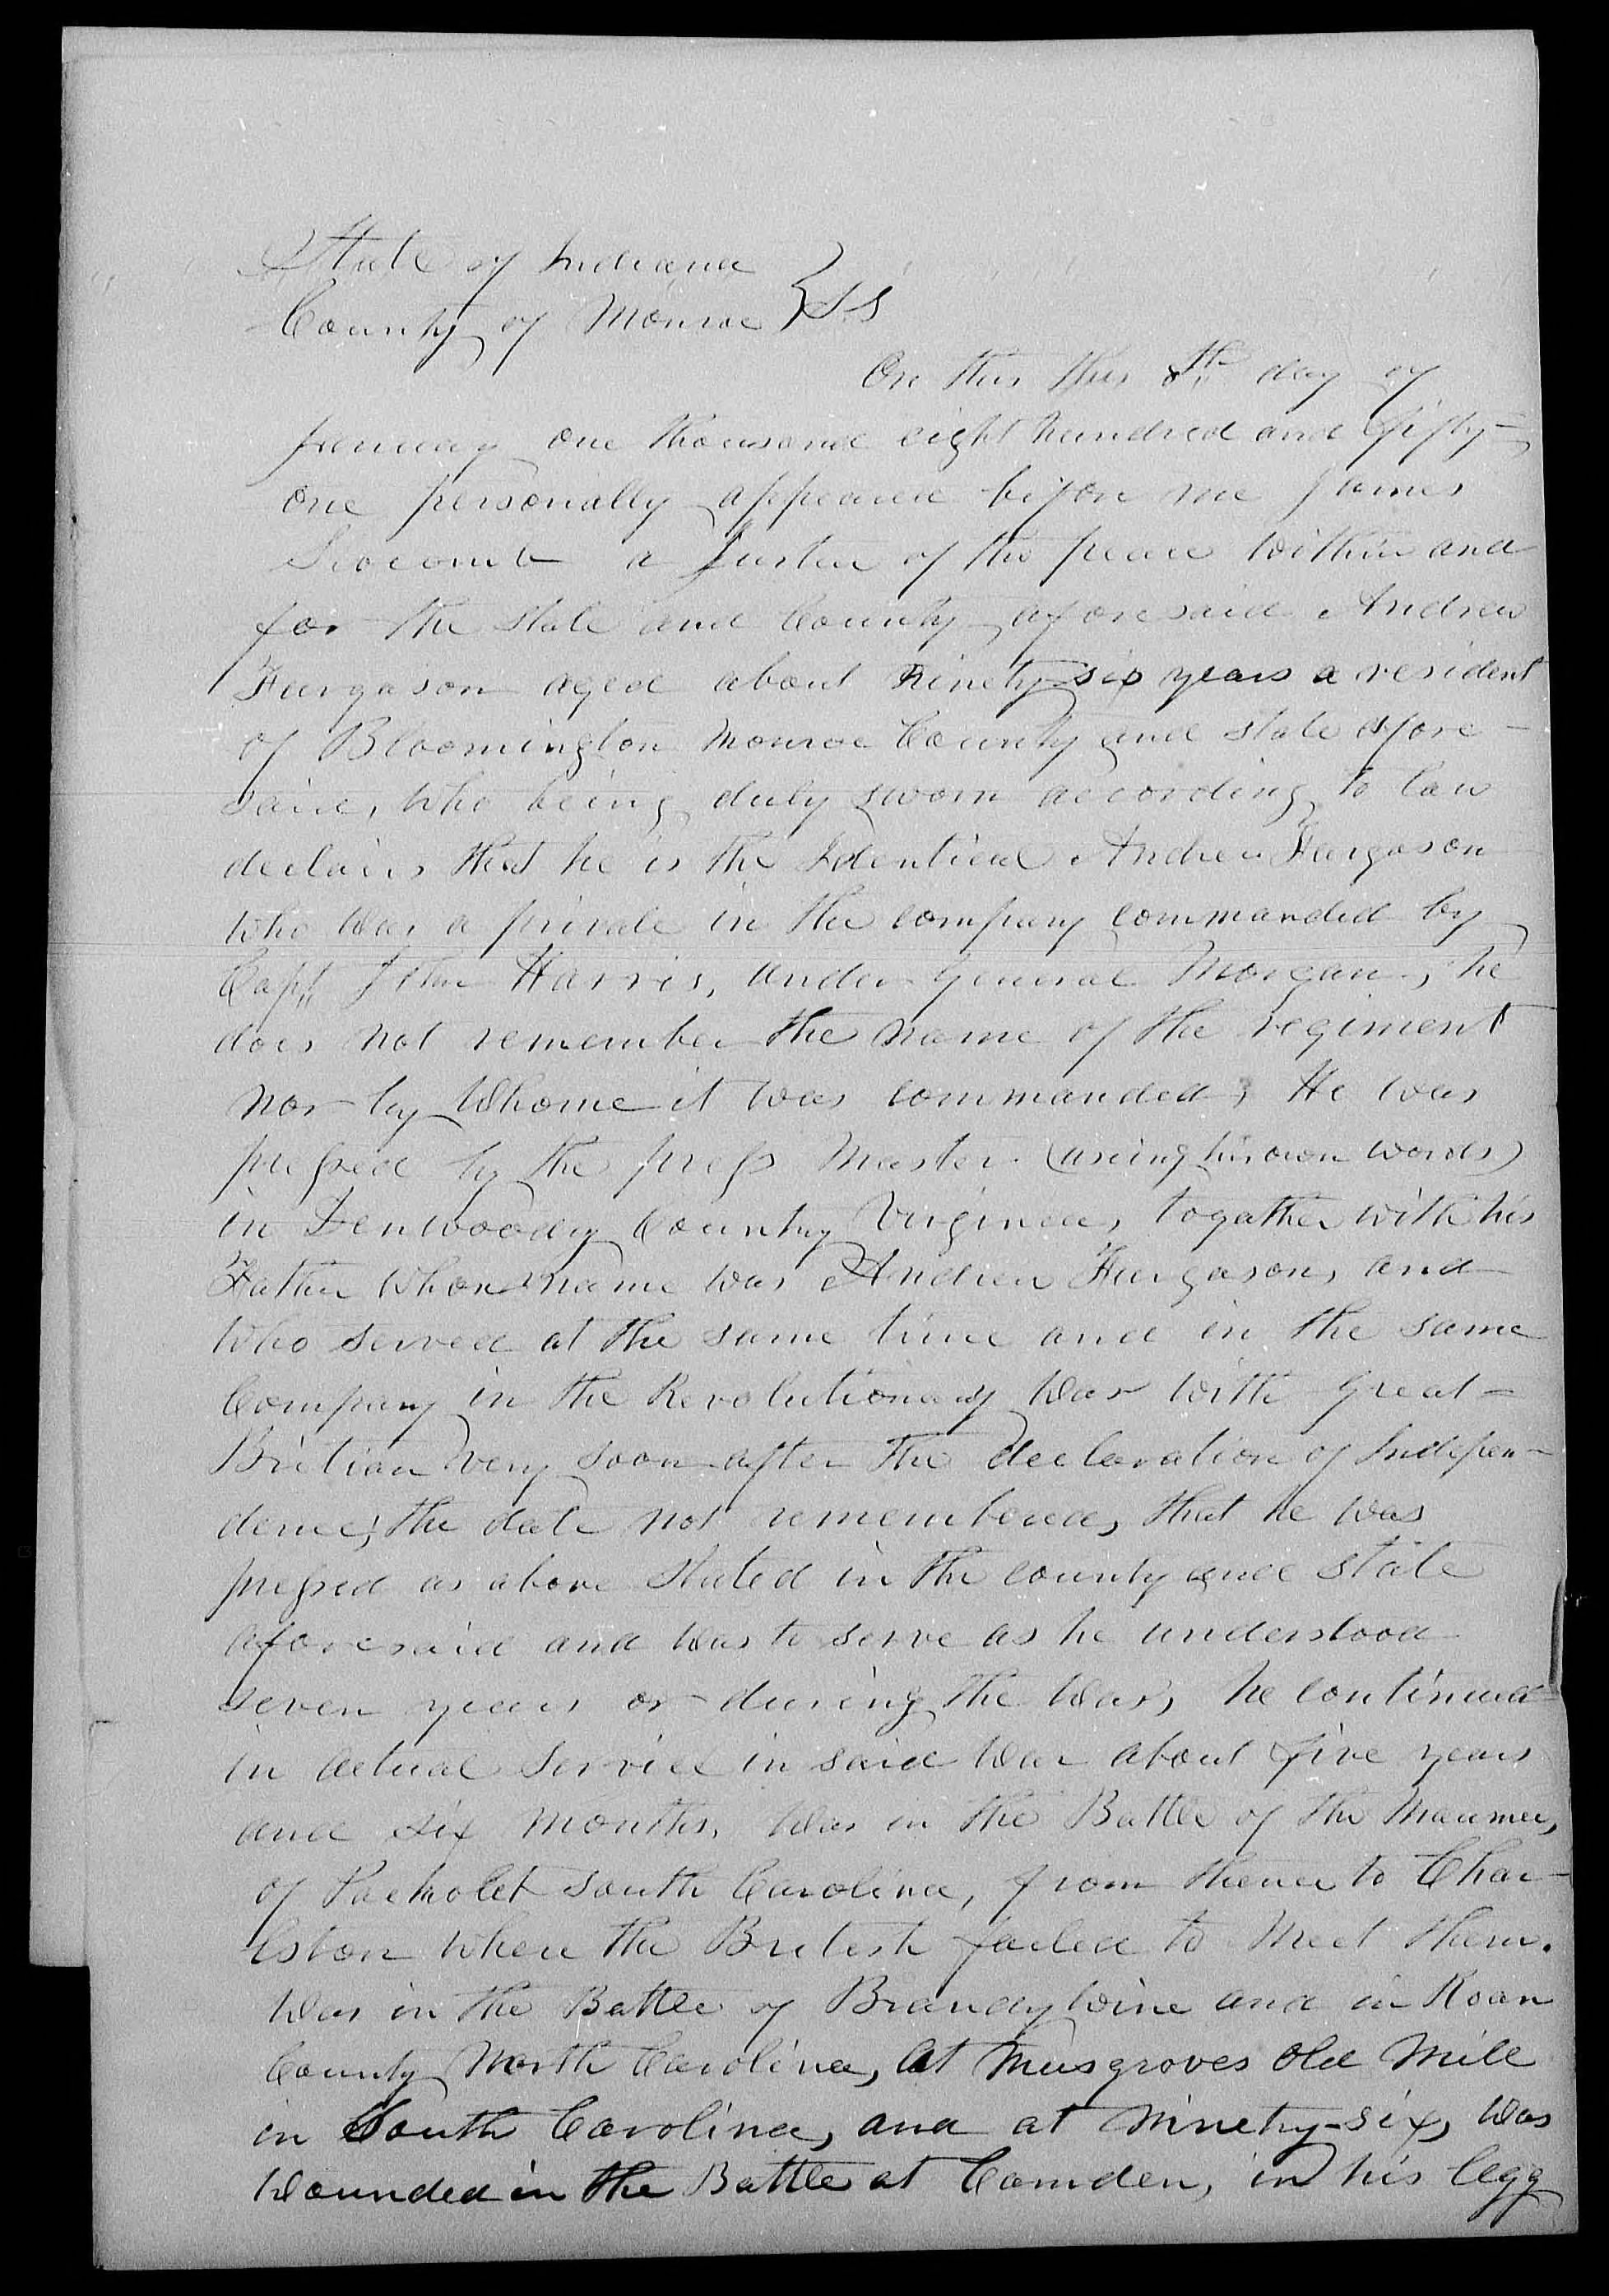 State of Indiana
County of Monroe } S.S
On this this 8th day of
January one thousand eight hundred and fifty-
one personally appeared before me James
Slocomb a Justice of the peace within and
for the state and County aforesaid Andrew
Furgason aged about Ninety six years a resident
of Bloomington Monroe County and state afore-
said, who being duly sworn according to law
declairs that he is the Identical Andrew Furgason
who was a private in the company commanded by
Capt John Harris, under General Morgan, he
does not remember the name of the regiment
nor by Whome it was commanded; He was
pressed by the press Master (using his own words)
in Denwoody County Virginea, togather with his
Father Whose name was Andrew Furgason, and
who served at the same time and in the same
Company in the Revolutionary War with Great-
Britian very soon after the declaration of Indepen-
dence; the date not remembered, that he was
pressed as above Stated in the county and State
aforesaid and was to serve as he understood
seven years or during the War, he continued
in actual Service in said War about five years
and six months, Was in the Battle of the
of Packolet South Carolina, from thence to Char-
lston where the British failed to Meet them.
Was in the Battle of Brandywine and in Roan
County North Carolina, at Musgroves Old Mill
in South Carolina, and at Ninety-six, was
Wounded in the Battle at Camden, in his legg